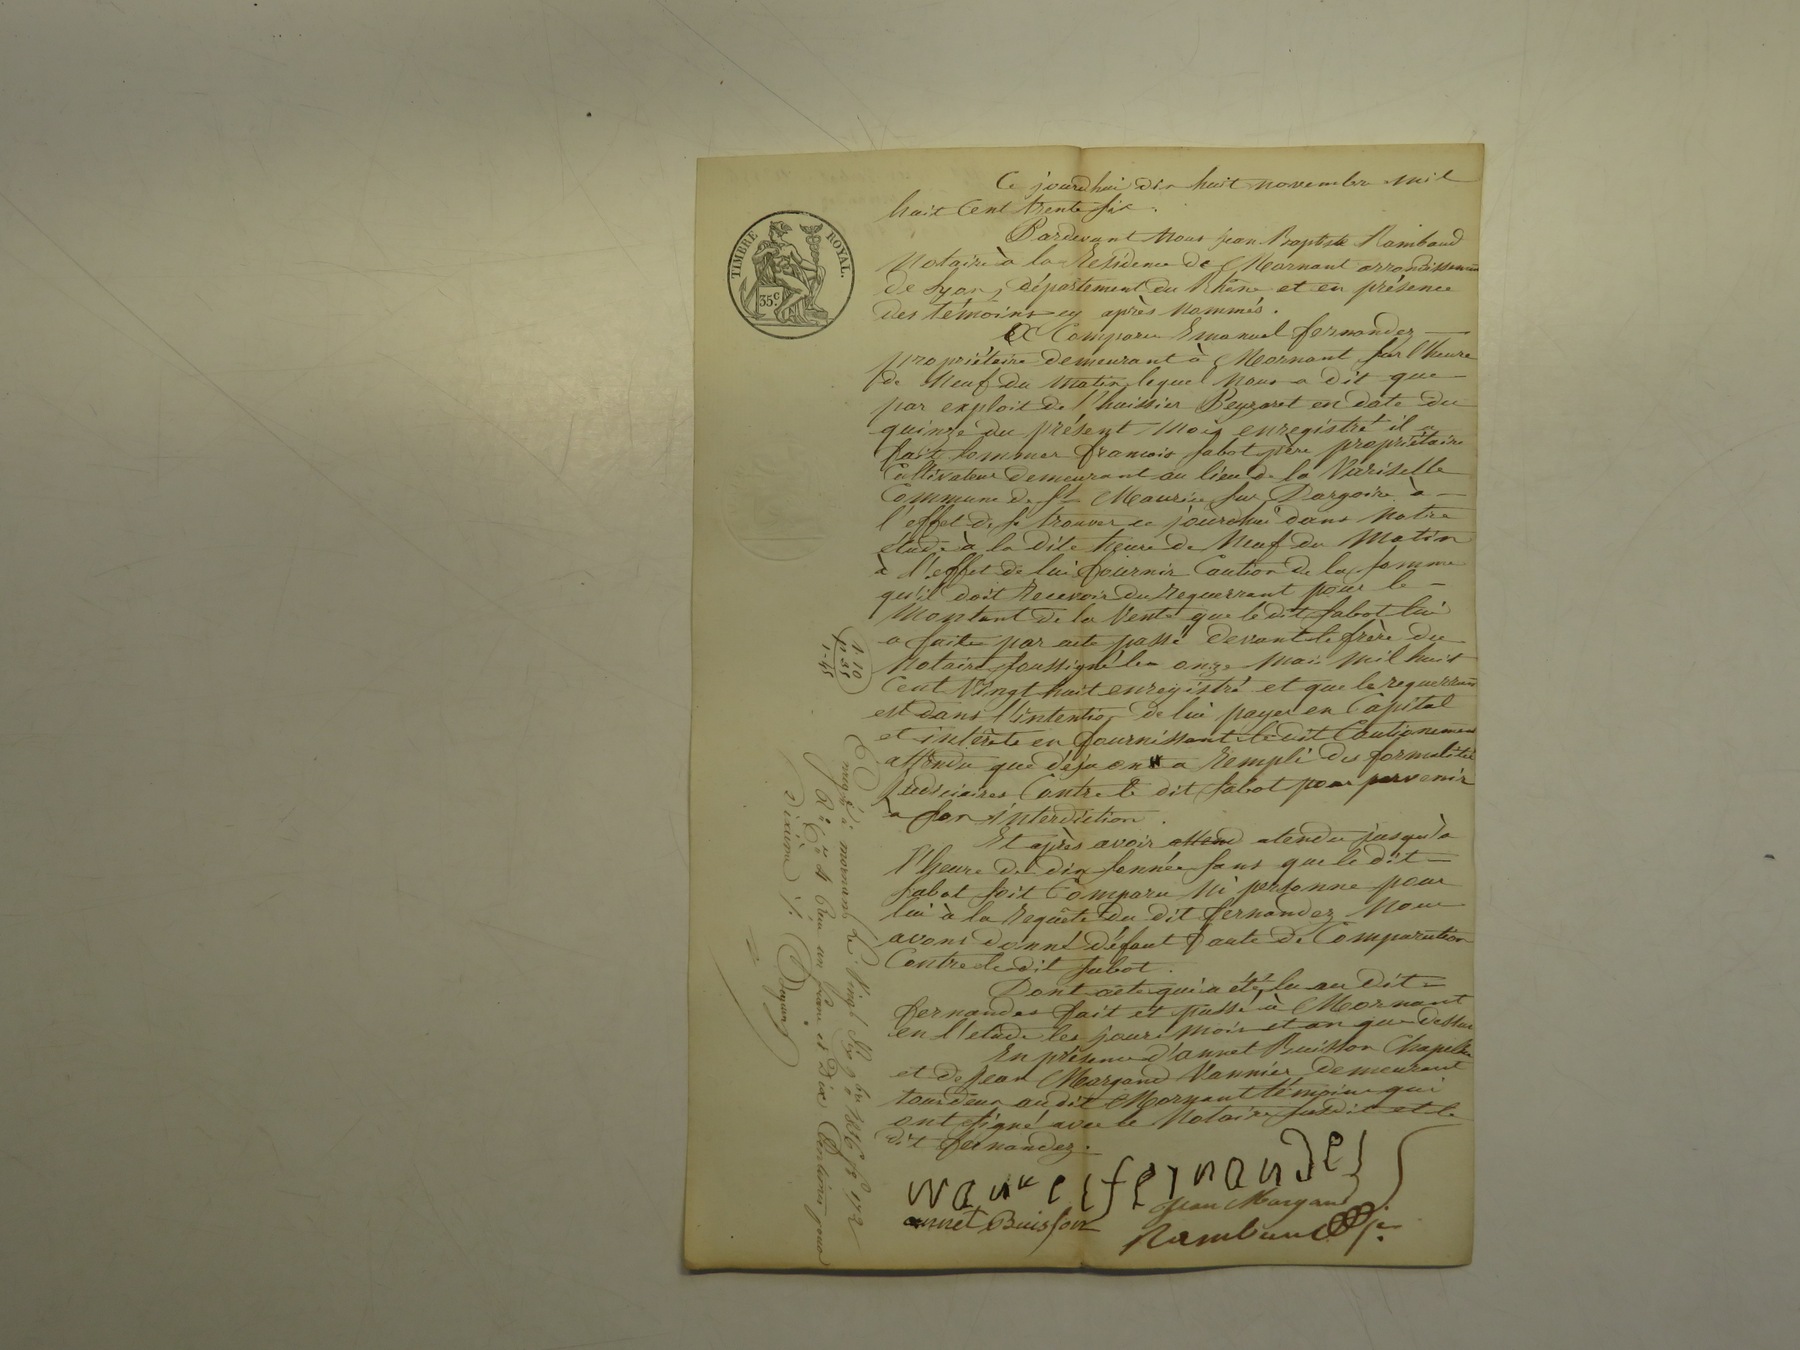 Ce jourdhui dix huit novembre mil
huit Cent trente six.
Pardevant Nous jean Baptiste Rambaud
Notaire à la Résidence de Mornant arrondissement
de Lyon, département du Rhône et en présence
des témoins cy après Nommés.
A Comparu Emanuel fernandez
propriétaire demeurant à Mornant sur l'heure
de Neuf du matin, lequel Nous a dit que
par exploit de l'huissier Peyzaret en date du
quinze du présent Mois enregistré il a
fait sommer françois fabot père propriétaire
Cultivateur demeurant au lieu de la Variselle
Commune de St Maurice sur Dargoire à
l'effet de se trouver ce jourdhui dans Notre
étude à la dite heure de Neuf du Matin
à l'effet de lui fournir Caution de la somme
qu'il doit Recevoir du Requerrant pour le
Montant de la Vente que le dit fabot lui
a faite par acte passé devant le frère du
Notaire soussigné le onze Mai Mil huit
Cent Vingt huit enregistré et que le requerrant
est dans l'intention de lui payer en Capital
et intérêts en fournissant le dit Cautionement
attendu que déja on a Rempli des formalités
judiciaires Contre le dit fabot pour parvenir
à son interdiction.
Et après avoir attend atendu jusqu'à
l'heure de dix sonnée sans que le dit
fabot soit Comparu Ni personne pour
lui à la Requête du dit fernandez Nous
avons donné défaut faute de Comparution
Contre le dit fabot.
Dont acte qui a été lu au dit
fernandes fait et passé à Mornant
en l'étude les jour Mois et an que dessus
En présence d'annet Buisson Chapelier
et de Jean Margand Vannier demeurant
tous deux au dit Mornant témoins qui
ont signé avec le Notaire susdit et le
dit fernandez.
fernandes
annét Buisson
jean Margand
Rambaud
TIMBRE ROYAL.
35c
1-10
Enregistré à mornant le Vingt
Reçu un franc et dix Centimes pour
Dixième